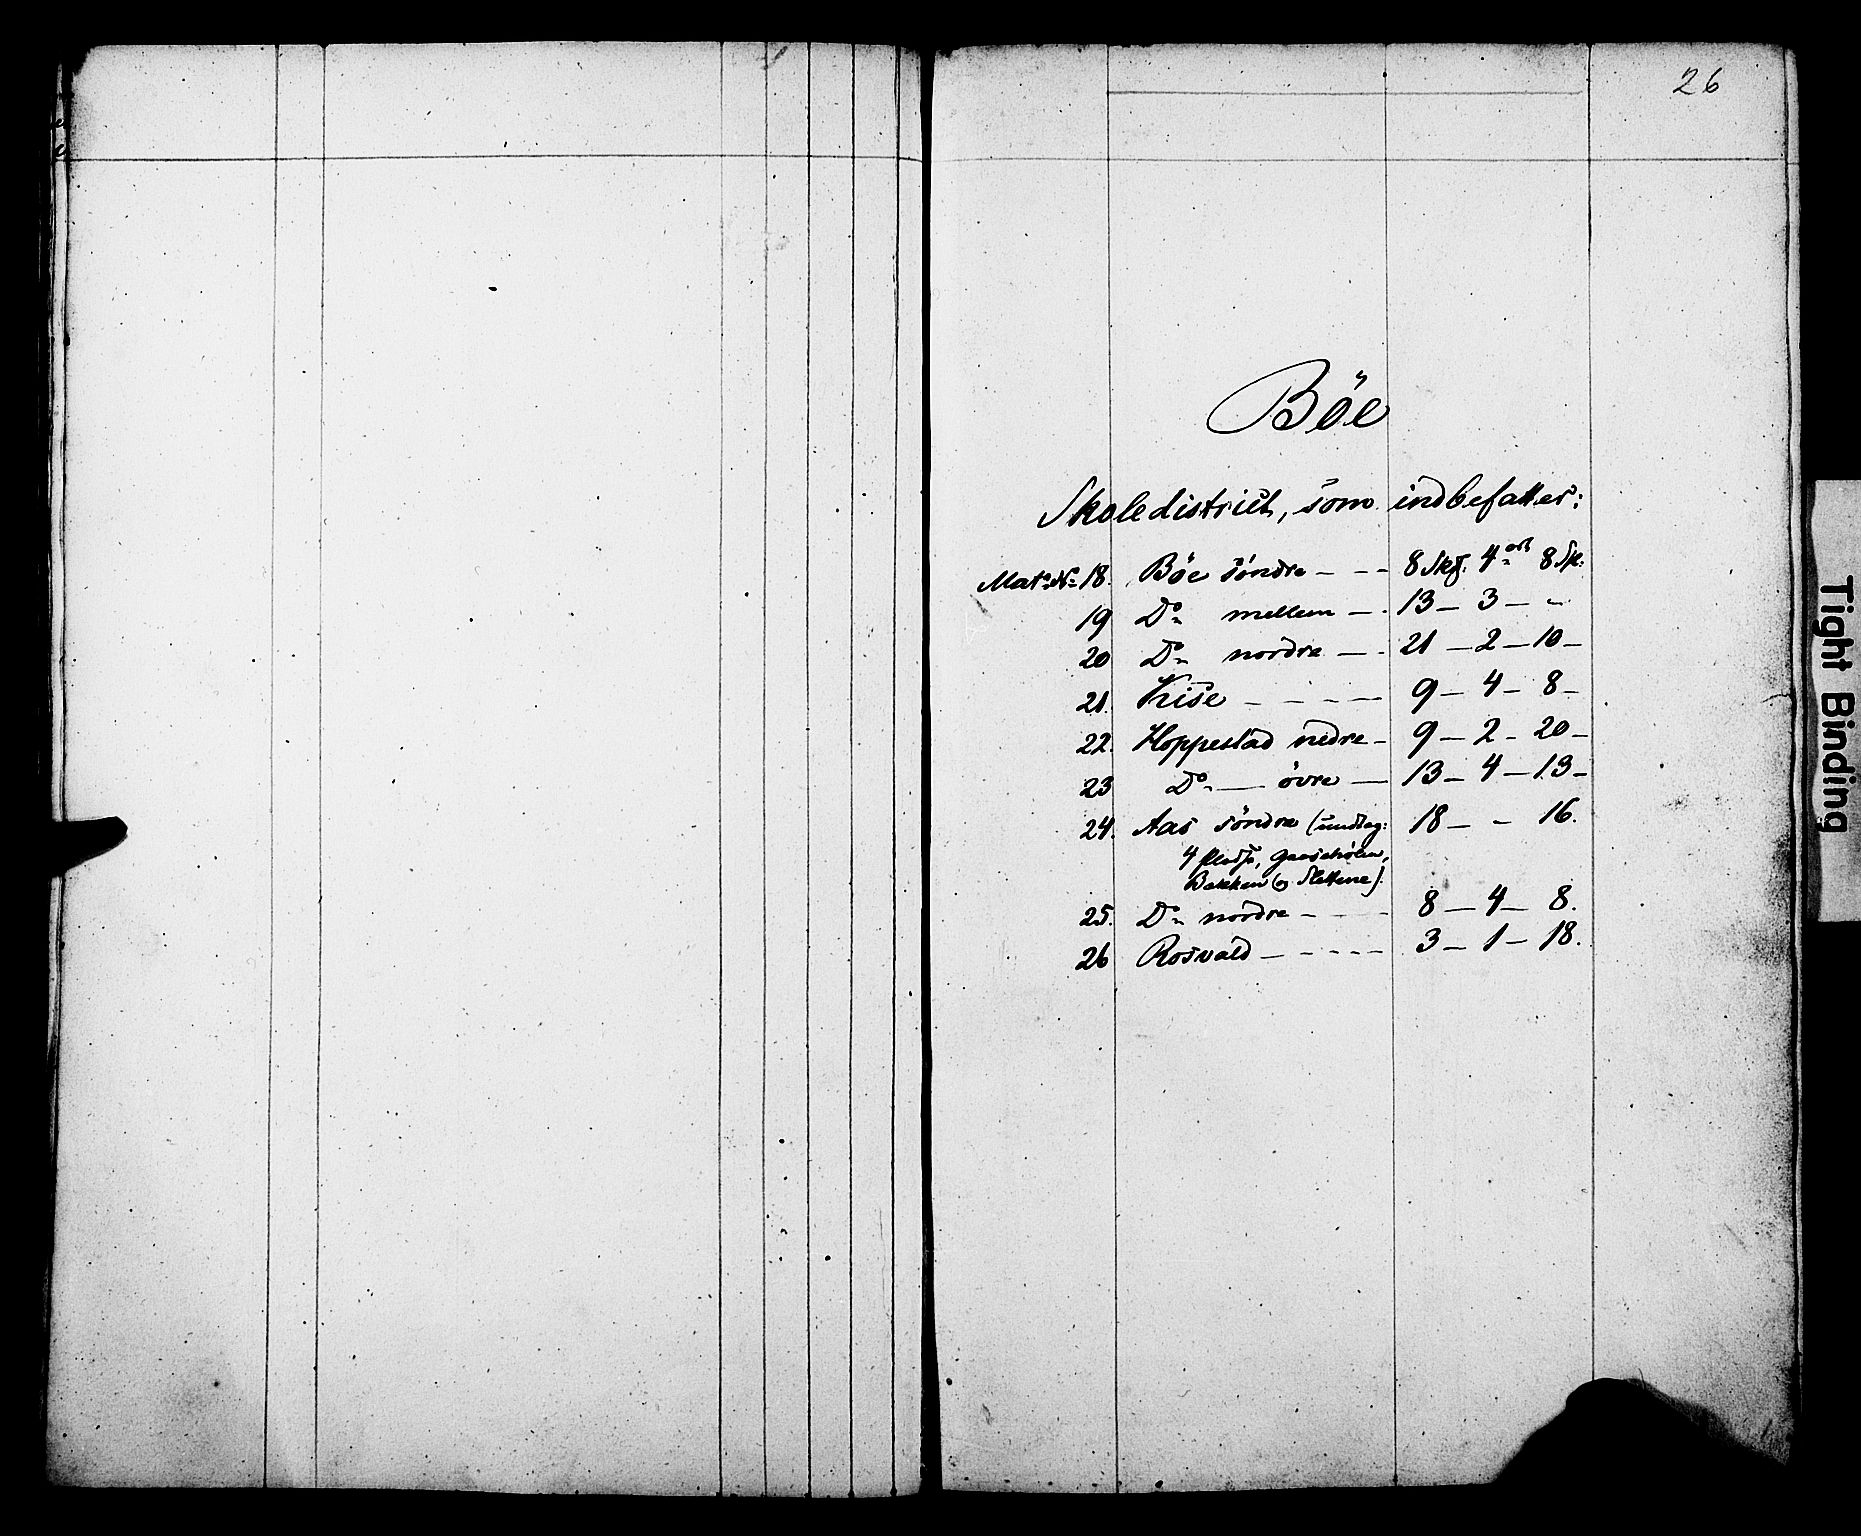 26
Böe
Skoledistrict, som indbefatter:
Matr. No 18. Böe söndre - - - 8 Skf. 4 ort 8 Sk:
19 Do mellem - - 13 - 3 - "
20 Do nordre - - 21 - 2 - 10 -
21. Krise - - - - 9 - 4 - 8 -
22. Hoppestad nedre - 9 - 2 - 20 -
23 Do - övre - 13 - 4 - 13 -
24. Aas söndre (undtag: 18 - - 16.
4 Pladse,
Bakken og Slettene).
25. Do nordre - - - 8 - 4 - 8.
26 Rosvald - - - - - 3 - 1 - 18.
Tight Binding